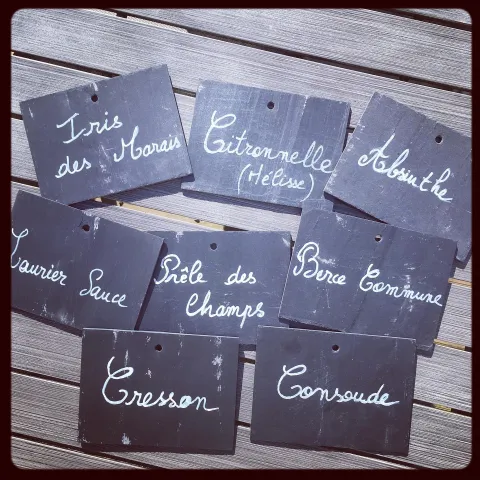 Iris
des Marais
Citronnelle
(Mélisse)
Absinthe
Laurier Sauce
Prêle des
Champs
Berce Commune
Cresson
Consoude